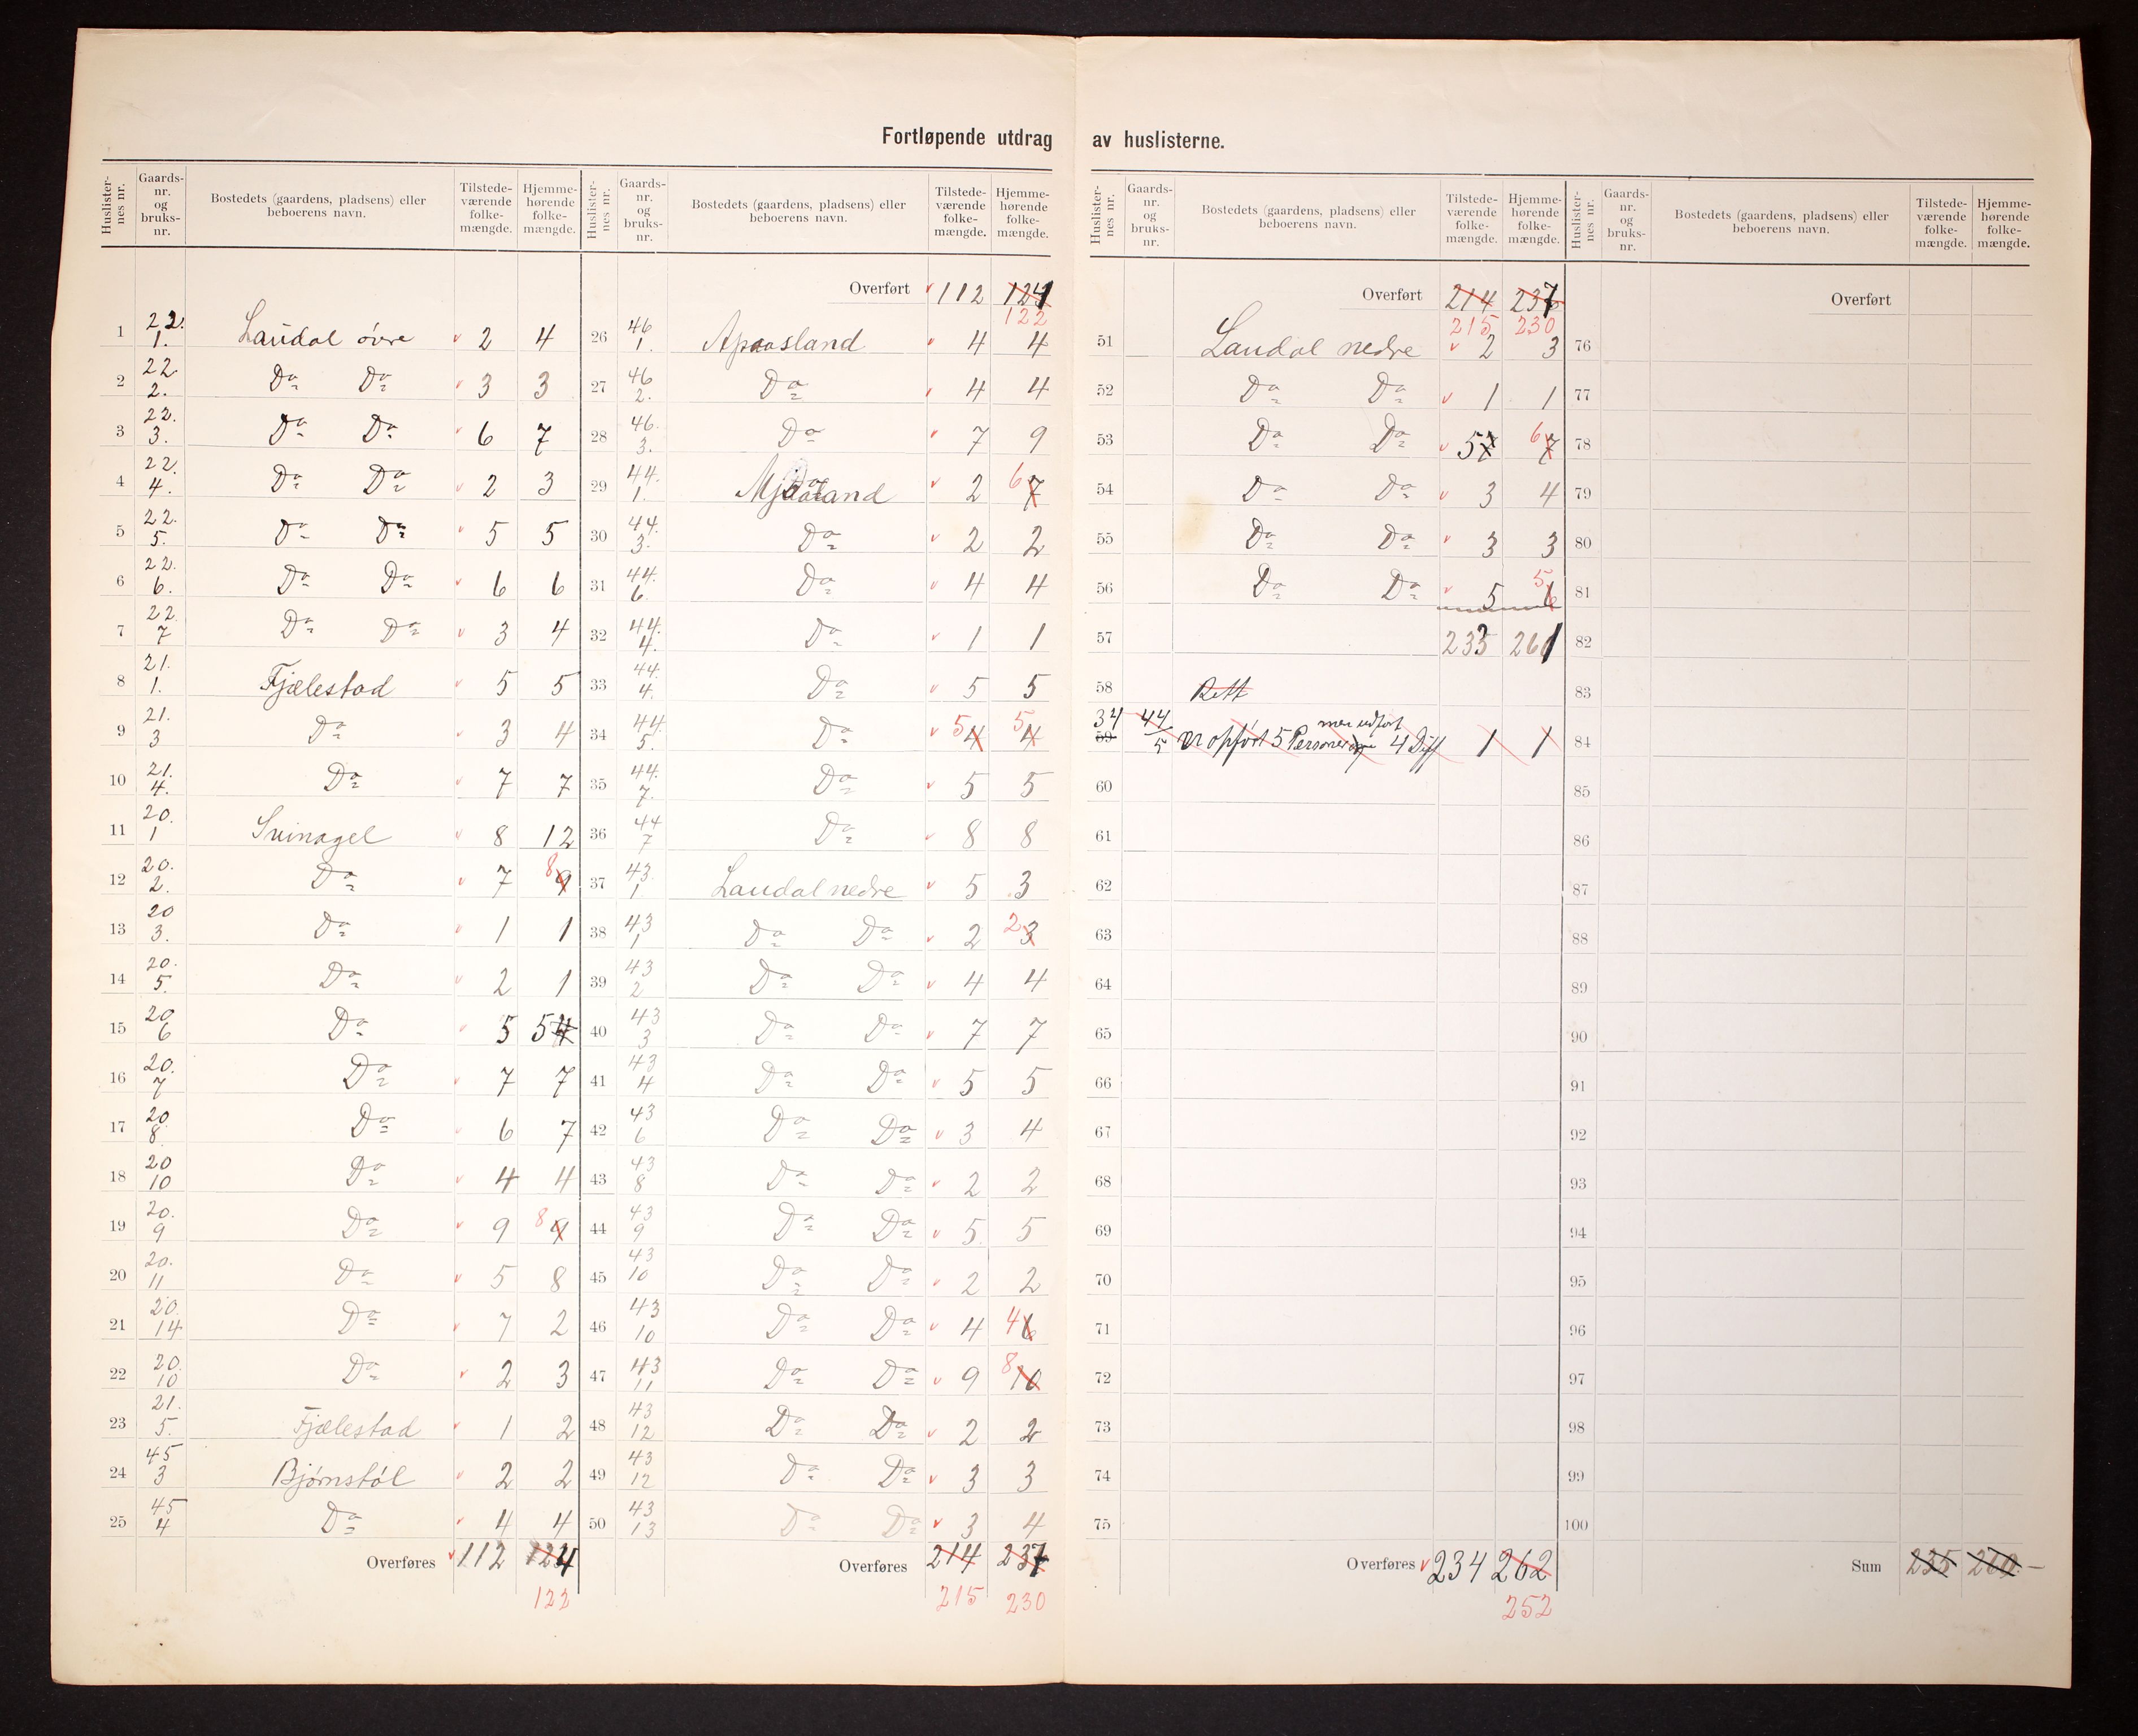 Fortløpende utdrag av huslisterne.
Huslister-nes nr. | Gaards-nr. og bruks-nr. | Bostedets (gaardens, pladsens) eller beboerens navn. | Tilstede-værende folke-mængde. | Hjemme-hørende folke-mængde.
1 22. 1. Laudal övre v 2 4
2 22. 2. Do Do v 3 3
3 22. 3. Do Do v 6 7
4 22. 4. Do Do v 2 3
5 22. 5. Do Do v 5 5
6 22. 6. Do Do v 6 6
7 22. 7 Do Do v 3 4
8 21. 1. Fjælestad v 5 5
9 21. 3 Do v 3 4
10 21. 4. Do v 7 7
11 20. 1 Svinagel v 8 12
12 20. 2. Do v 7 8 9
13 20 3. Do v 1 1
14 20. 5. Do v 2 1
15 20 6 Do v 5 5 4
16 20. 7 Do v 7 7
17 20. 8 Do v 6 7
18 20 10 Do v 4 4
19 20. 9 Do v 9 8 9
20 20. 11 Do v 5 8
21 20. 14 Do v 7 2
22 20. 10 Do v 2 3
23 21. 5. Fjælestad v 1 2
24 45 3 Bjørnstöl v 2 2
25 45 4 Do v 4 4
Overføres v 112 124
122
Huslister-nes nr. | Gaards-nr. og bruks-nr. | Bostedets (gaardens, pladsens) eller beboerens navn. | Tilstede-værende folke-mængde. | Hjemme-hørende folke-mængde.
Overført v 112 124
122
26 46 1. Apaasland v 4 4
27 46 2. Do v 4 4
28 46. 3. Do v 7 9
29 44. 1. Mjaaland v 2 6 7
30 44. 3. Do v 2 2
31 44. 6. Do v 4 4
32 44. 4. Do v 1 1
33 44. 4. Do v 5 5
34 44. 5. Do v 5 4 5 4
35 44. 7. Do v 5 5
36 44 7 Do v 8 8
37 43. 1 Laudal nedre v 5 3
38 43 1 Do Do v 2 2 3
39 43 2 Do Do v 4 4
40 43 3 Do Do v 7 7
41 43 4 Do Do v 5 5
42 43 6 Do Do v 3 4
43 43 8 Do Do v 2 2
44 43 9 Do Do v 5 5
45 43 10 Do Do v 2 2
46 43 10 Do Do v 4 4 6
47 43 11 Do Do v 9 8 10
48 43 12 Do Do v 2 2
49 43 12 Do Do v 3 3
50 43 13 Do Do v 3 4
Overføres 214 237
215 230
Huslister-nes nr. | Gaards-nr. og bruks-nr. | Bostedets (gaardens, pladsens) eller beboerens navn. | Tilstede-værende folke-mængde. | Hjemme-hørende folke-mængde.
Overført 214 237
215 230
51 Laudal nedre v 2 3
52 Do Do v 1 1
53 Do Do v 5 7 6 7
54 Do Do v 3 4
55 Do Do v 3 3
56 Do Do v 5 5 6
57 233 261
58 Rett
34 59 44 5 er opfört 5 Personer men udfört 4 Diff 1 1
60
61
62
63
64
65
66
67
68
69
70
71
72
73
74
75
Overføres v 234 262
252
Huslister-nes nr. | Gaards-nr. og bruks-nr. | Bostedets (gaardens, pladsens) eller beboerens navn. | Tilstede-værende folke-mængde. | Hjemme-hørende folke-mængde.
Overført
76
77
78
79
80
81
82
83
84
85
86
87
88
89
90
91
92
93
94
95
96
97
98
99
100
Sum 235 260.—